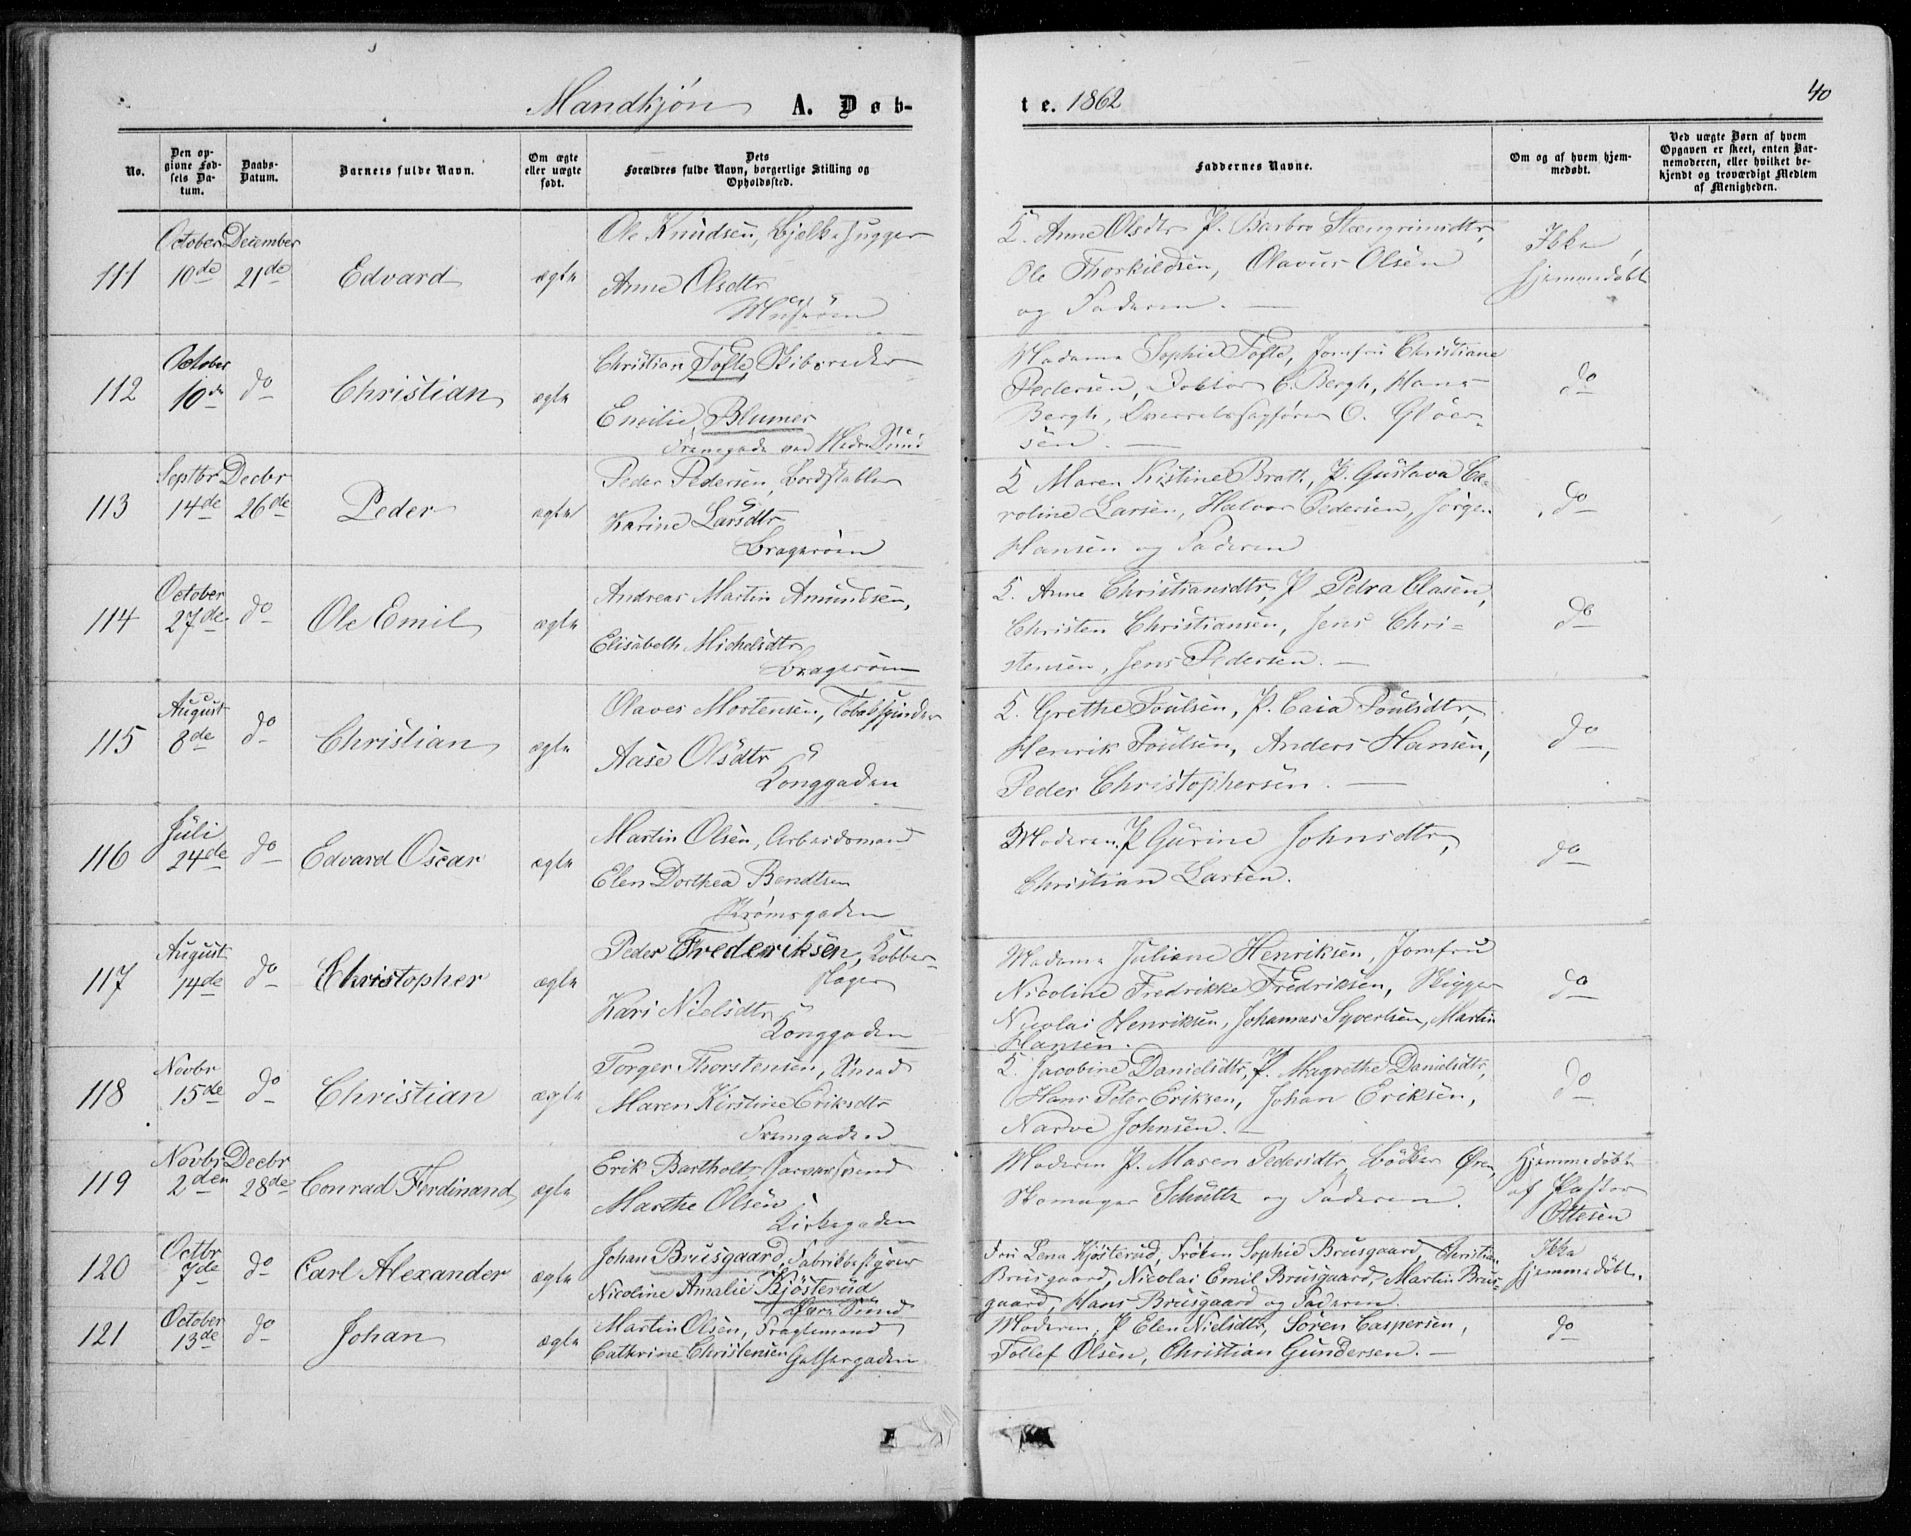 Mandkjøn A. Døb-
te. 1862
40
No.
Den opgivne Fødsels Datum.
Daabs-Datum.
Barnets fulde Navn.
Om ægte eller uægte født.
Dets Forældres fulde Navn, borgerlige Stilling og Opholdssted.
Faddernes Navne.
Om og af hvem hjemmedøbt.
Ved uægte Børn af hvem Opgaven er skeet, enten Barnemoderen, eller hvilket bekjendt og troværdigt Medlem af Menigheden.
111 October 10de December 21de Edvard ægte
Ole Knudsen, Bjelkehugger
Anne Olsdtr
K. Anne Olsdtr P. Barbro
Ole Thorkildsen, Olavus Olsen
og Faderen. —
Ikke hjemmedøbt
112 October 10de do Christian ægte
Christian Tofte, Skibsreder
Emilie Blumer
Madame Sophie Tofte, Jomfru Christiane
Pedersen, Doktor C. Bergh, Hans
Bergh, Overretssagfører O. Gløer-
sen. —
do
113 Septbr 14de Decbr 26de Peder ægte
Peder Pedersen, Bordstabler
Karine Larsdtr
Bragerøen
K Maren Kistine Bratt, P. Gustava Ca-
roline Larsen, Halvor Pedersen, Jørgen
Hansen og Faderen
do
114 October 27de do Ole Emil ægte
Andreas Martin Amundsen,
Elisabeth Michelsdtr
Bragerøen
K. Anne Christiansdtr, P Petra Olasen,
Christen Christiansen, Jens Chri-
stensen, Jens Pedersen. —
do
115 August 8de do Christian ægte
Olaves Mortensen, Tobakspinder
Aase Olsdtr
Konggaden
K. Grethe Poulsen, P. Caia Poulsdtr,
Henrik Poulsen, Anders Hansen,
Peder Christophersen. —
do
116 Juli 24de do Edvard Oscar ægte
Martin Olsen, Arbeidsmand
Elen Dorthea Bendtsen
Strømsgaden
Moderen, P Gurine Johnsdtr,
Christian Larsen.
do
117 August 14de do Christopher ægte
Peder Frederiksen, Kobber-
slager
Kari Nielsdtr
Konggaden
Madame Juliane Henriksen, Jomfru
Nicoline Fredrikke Fredriksen, Skipper
Nicolai Henriksen, Johannes Syvertsen, Martin
Hansen.
do
118 Novbr 15de do Christian ægte
Torger Thorstensen, Smed
Maren Kirstine Eriksdtr
Fremgaden
K. Jacobine Danielsdtr, P. Magrethe Danielsdtr,
Hans Peter Eriksen, Johan Eriksen,
Narve Johnsen. —
do
119 Novbr 2den Decbr 28de Conrad Ferdinand ægte
Erik Bartholt, Garversvend
Marthe Olsen
Kirkegaden
Moderen P. Maren Pedersdtr, Bødker Øren,
Skomager Schultz og Faderen.
Hjemmedøbt
af Pastor
Ottesen
120 Octbr 7de do Carl Alexander ægte
Johan Brusgaard, Fabrikbestyrer
Nicoline Amalie Kjøsterud
Fru Lena Kjøsterud, Frøken Sophie Brusgaard, Christian
Brusgaard, Nicolai Emil Brusgaard, Martin Brus-
gaard, Hans Brusgaard og Faderen.
Ikke hjemmedøbt.
121 October 13de do Johan ægte
Martin Olsen, Fragtemand
Cathrine Christensen
Moderen, P Elen Nielsdtr, Søren Caspersen,
Tollef Olsen, Christian Gundersen. —
do